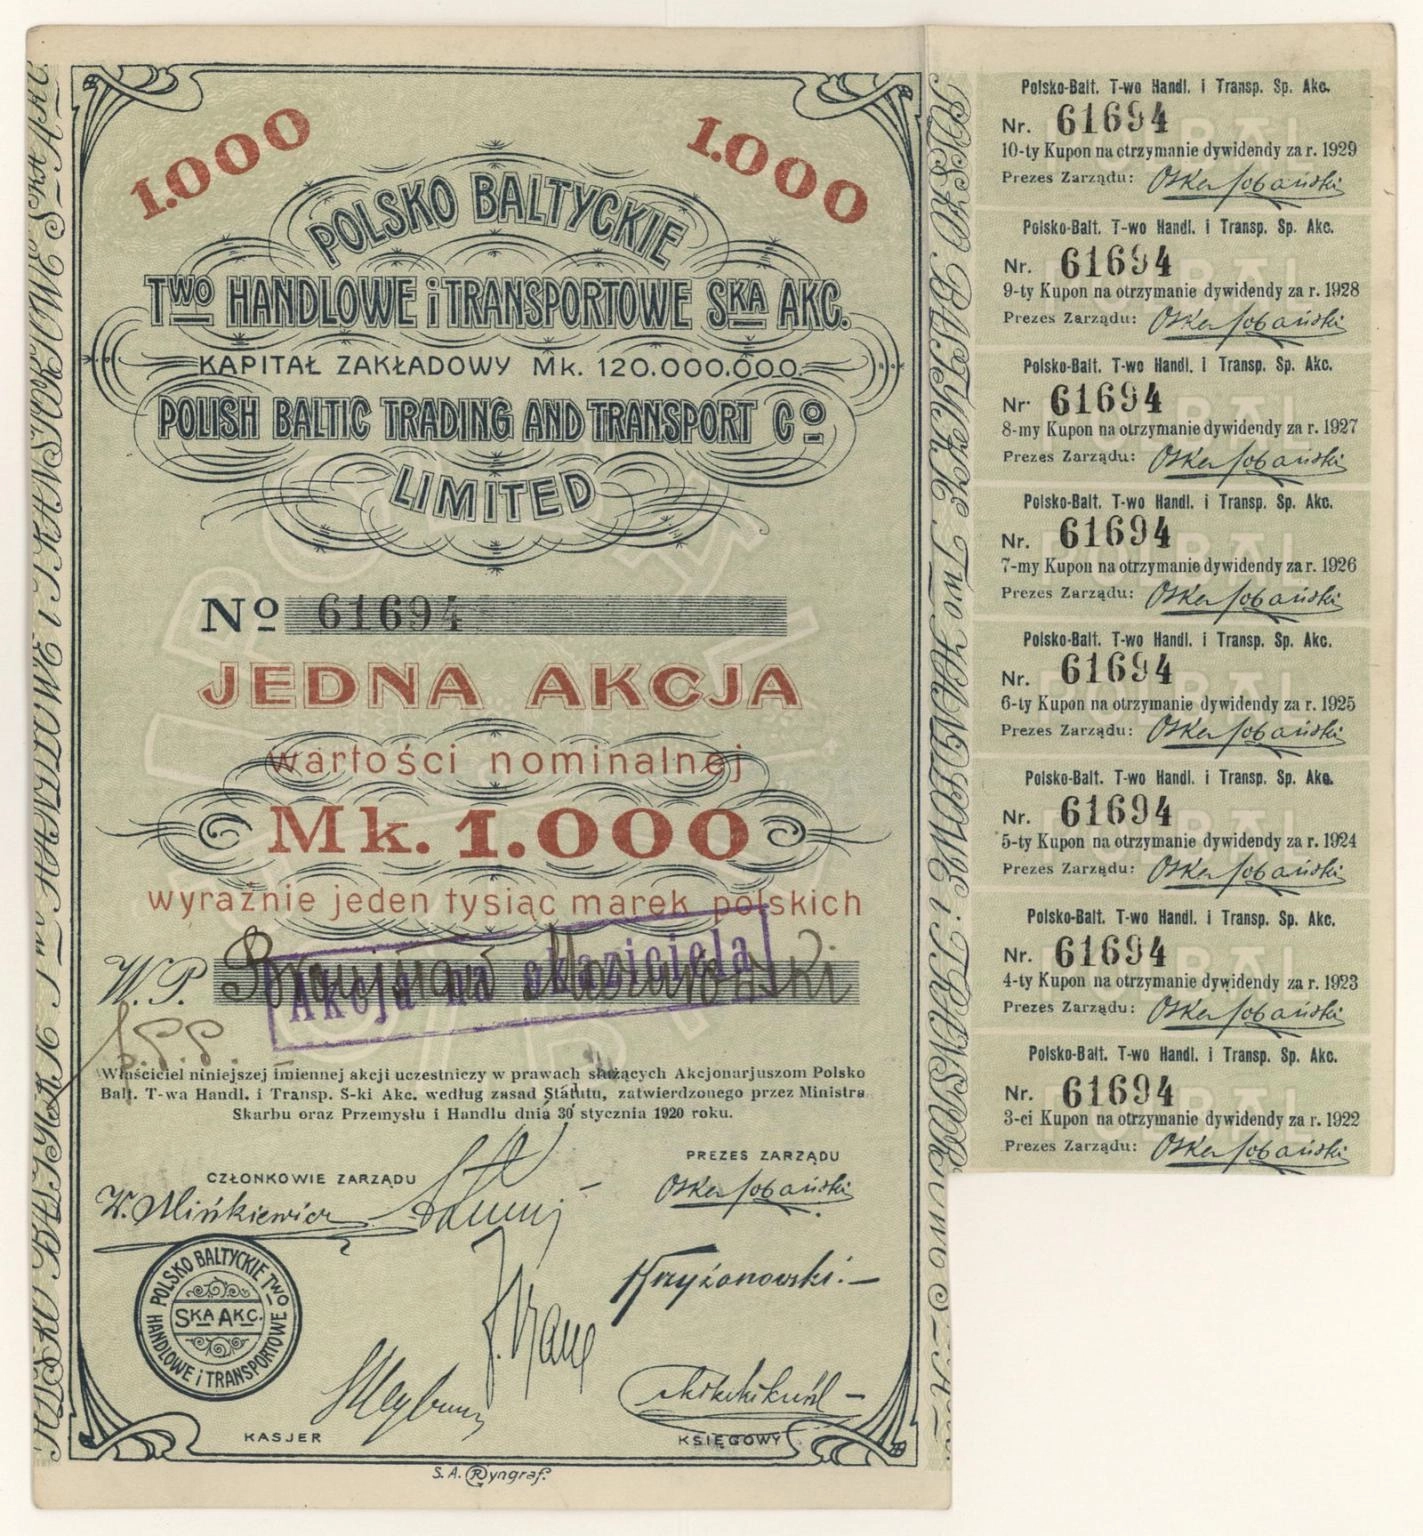 1.000
1.000
POLSKO BALTYCKIE
TWO HANDLOWE i TRANSPORTOWE SKA AKC.
KAPITAŁ ZAKŁADOWY Mk. 120.000.000.
POLISH BALTIC TRADING AND TRANSPORT CO
LIMITED
No 61694
JEDNA AKCJA
wartości nominalnej
Mk. 1.000
wyraźnie jeden tysiąc marek polskich
W. P.
Akcja na okaziciela
Właściciel niniejszej imiennej akcji uczestniczy w prawach służących Akcjonarjuszom Polsko
Balt. T-wa Handl. i Transp. S-ki Akc. według zasad Statutu, zatwierdzonego przez Ministra
Skarbu oraz Przemysłu i Handlu dnia 30 stycznia 1920 roku.
CZŁONKOWIE ZARZĄDU
PREZES ZARZĄDU
W. Mińkiewicz
Oskar Sobański
Krzyżanowski.
POLSKO BALTYCKIE TWO
HANDLOWE i TRANSPORTOWE
SKA AKC.
KASJER
KSIĘGOWY
S. A. Ryngraf.
Polsko-Balt. T-wo Handl. i Transp. Sp. Akc.
Nr. 61694
10-ty Kupon na otrzymanie dywidendy za r. 1929
Prezes Zarządu: Oskar Sobański
Polsko-Balt. T-wo Handl. i Transp. Sp. Akc.
Nr. 61694
9-ty Kupon na otrzymanie dywidendy za r. 1928
Prezes Zarządu: Oskar Sobański
Polsko-Balt. T-wo Handl. i Transp. Sp. Akc.
Nr. 61694
8-my Kupon na otrzymanie dywidendy za r. 1927
Prezes Zarządu: Oskar Sobański
Polsko-Balt. T-wo Handl. i Transp. Sp. Akc.
Nr. 61694
7-my Kupon na otrzymanie dywidendy za r. 1926
Prezes Zarządu: Oskar Sobański
Polsko-Balt. T-wo Handl. i Transp. Sp. Akc.
Nr. 61694
6-ty Kupon na otrzymanie dywidendy za r. 1925
Prezes Zarządu: Oskar Sobański
Polsko-Balt. T-wo Handl. i Transp. Sp. Akc.
Nr. 61694
5-ty Kupon na otrzymanie dywidendy za r. 1924
Prezes Zarządu: Oskar Sobański
Polsko-Balt. T-wo Handl. i Transp. Sp. Akc.
Nr. 61694
4-ty Kupon na otrzymanie dywidendy za r. 1923
Prezes Zarządu: Oskar Sobański
Polsko-Balt. T-wo Handl. i Transp. Sp. Akc.
Nr. 61694
3-ci Kupon na otrzymanie dywidendy za r. 1922
Prezes Zarządu: Oskar Sobański